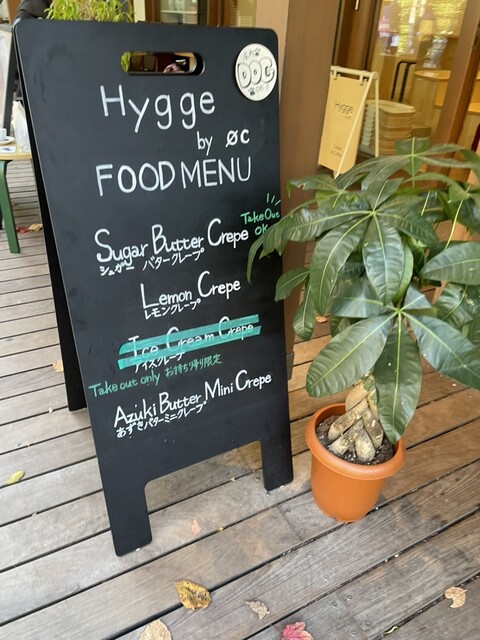 DOG
Hygge
by ØC
FOOD MENU
Take Out
OK
Sugar Butter Crepe
シュガー バタークレープ
Lemon Crepe
レモンクレープ
Ice Cream Crepe
アイスクレープ
Take out only お持ち帰り限定
Azuki Butter Mini Crepe
あずきバターミニクレープ
Hygge